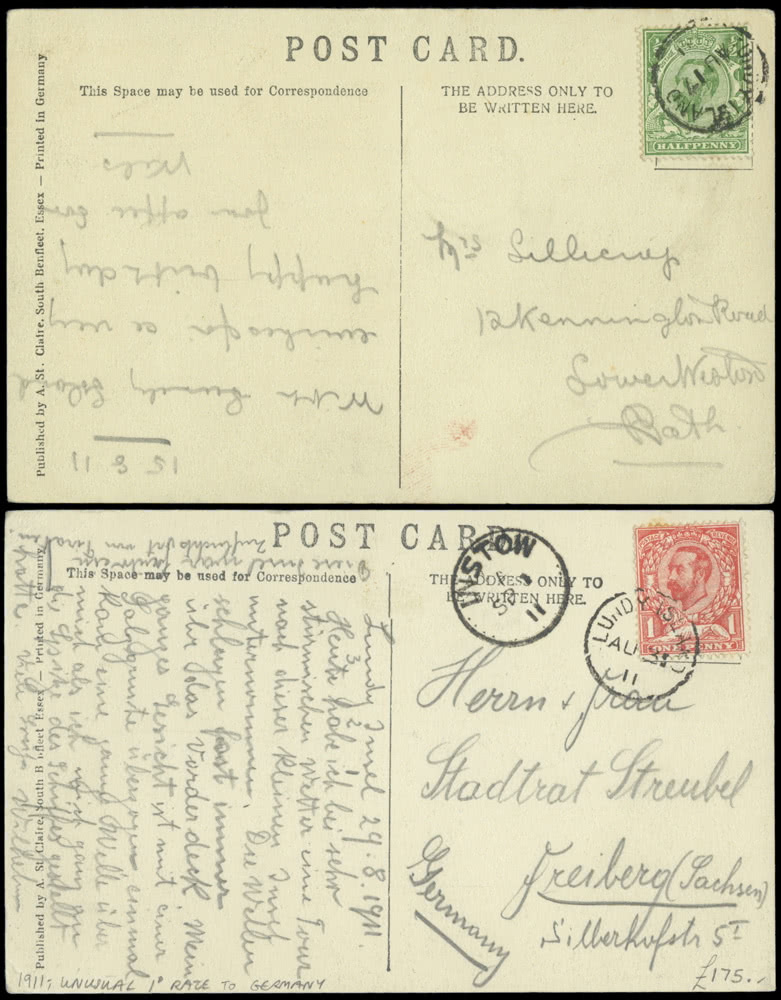 POST CARD.
This Space may be used for Correspondence
THE ADDRESS ONLY TO
BE WRITTEN HERE.
Published by A. St. Claire, South Benfleet, Essex — Printed in Germany
HALFPENNY
LUNDY ISLAND
AU 17
15 8 11
With Lundy Island
wishes for a very
happy birthday
Lillicrap
12 Kennington Road
Lower Weston
Bath
POST CARD.
This Space may be used for Correspondence
THE ADDRESS ONLY TO
BE WRITTEN HERE.
Published by A. St. Claire, South Benfleet Essex — Printed in Germany
POSTAGE REVENUE
1 ONE PENNY 1
LUNDY ISLAND
AU
11
INSTOW
SP 1
11
Lundy Insel 29.8.1911.
Heute habe ich bei sehr
stürmischen Wetter eine Tour
nach dieser kleinen Insel
unternommen. Die Wellen
schlugen fast immer
über das Vorderdeck. Mein
ganzes Gesicht ist mit einer
Salzkruste überzogen. einmal
kam eine ganze Welle über
mich als ich mich ganz an
die Spitze des Schiffes gestellt
hatte. Viele Wilhelm
Herrn & Frau
Stadtrat Streubel
Freiberg (Sachsen)
Silberhofstr 5 I
Germany
1911; UNUSUAL 1D RATE TO GERMANY
£175.-